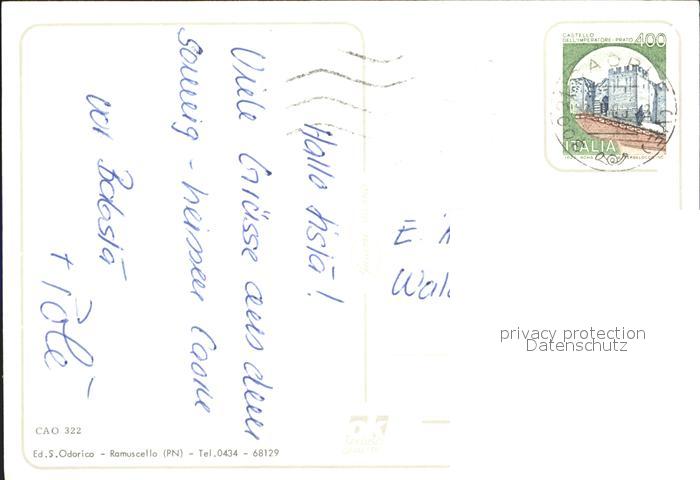 Hallo Asta!
Viele Grüsse aus dem
sonnig - heissen Caorle
von Balasta
+ Pole
CAO 322
Ed.S.Odorico - Ramuscello (PN) - Tel.0434 - 68129
CASTELLO
DELL'IMPERATORE-PRATO 400
ITALIA
CAORLE
E.
privacy protection
Datenschutz